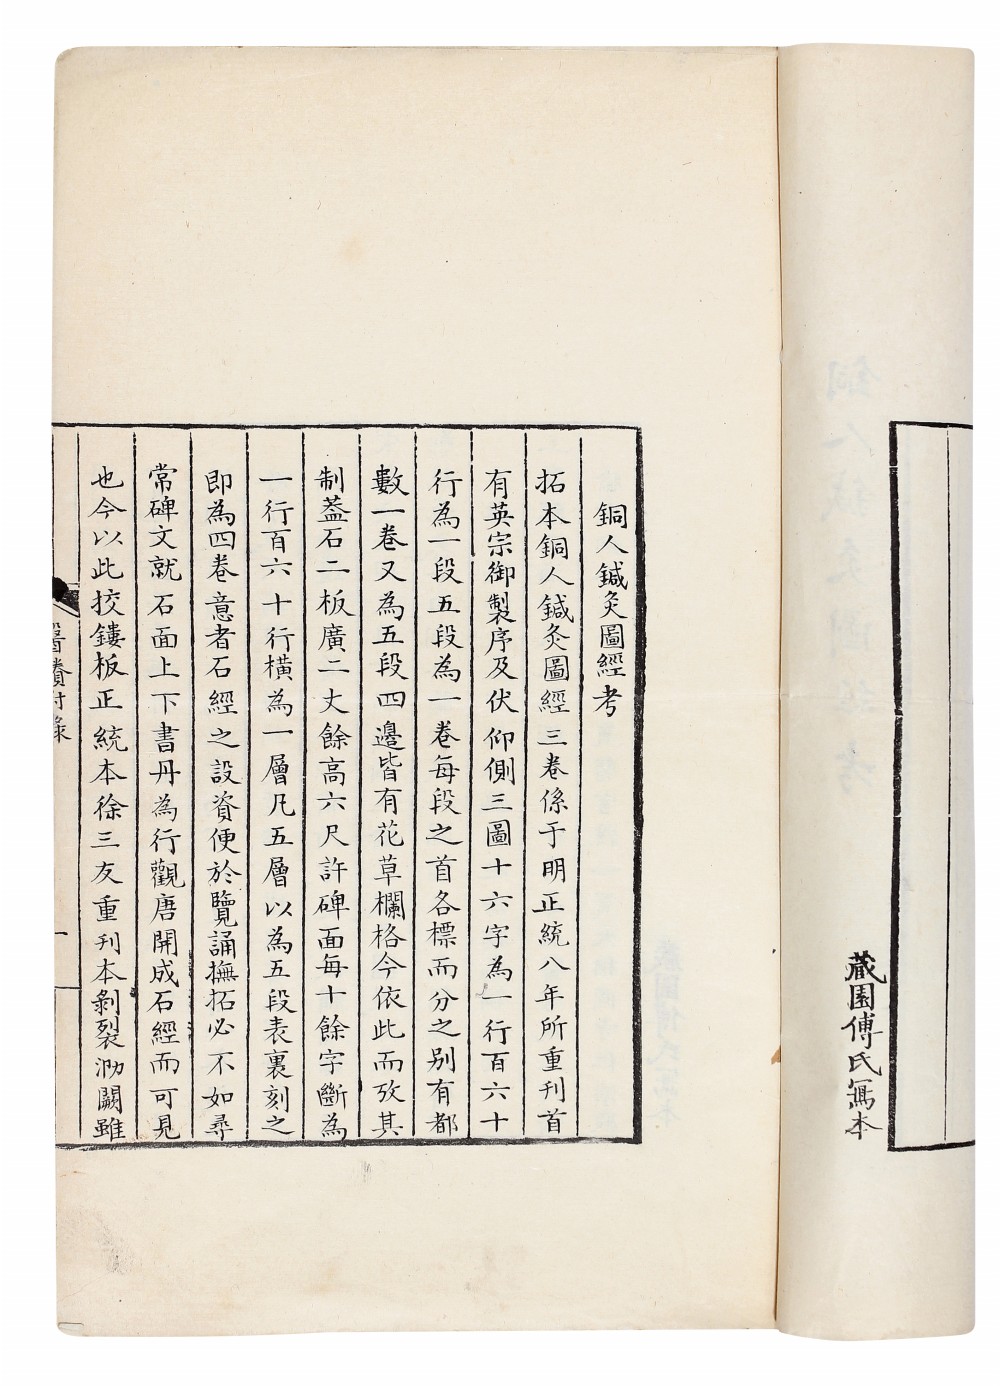 藏園傅氏寫本
銅人鍼灸圖經考
拓本銅人鍼灸圖經三卷係于明正統八年所重刊首
有英宗御製序及伏仰側三圖十六字為一行百六十
行為一段五段為一卷每段之首各標而分之別有都
數一卷又為五段四邊皆有花草欄格今依此而攷其
制葢石二板廣二丈餘高六尺許碑面每十餘字斷為
一行百六十行橫為一層凡五層以為五段表裏刻之
即為四卷意者石經之設資便於覽誦撫拓必不如尋
常碑文就石面上下書丹為行觀唐開成石經而可見
也今以此挍鏤板正統本徐三友重刊本剝裂泐闕雖
醫賸附錄
一